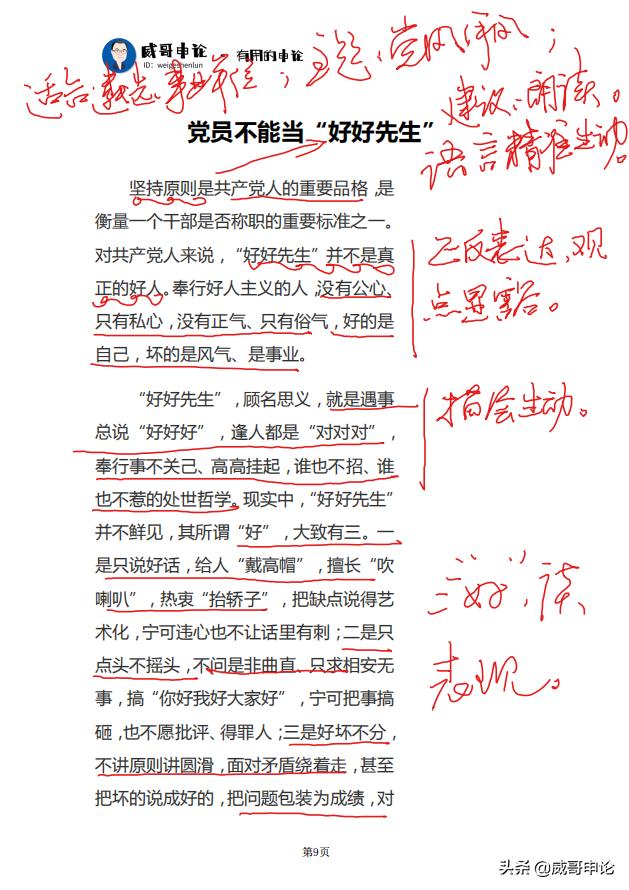 威哥申论
ID：weigeshenlun
有用的申论
适合：遴选、事业单位；主题：党风作风；
建议：朗读。
语言精准生动。
党员不能当“好好先生”
坚持原则是共产党人的重要品格，是
衡量一个干部是否称职的重要标准之一。
对共产党人来说，“好好先生”并不是真
正的好人。奉行好人主义的人，没有公心、
只有私心，没有正气、只有俗气，好的是
自己，坏的是风气、是事业。
正反表达，观
点显豁。
“好好先生”，顾名思义，就是遇事
总说“好好好”，逢人都是“对对对”，
奉行事不关己、高高挂起，谁也不招、谁
也不惹的处世哲学。现实中，“好好先生”
并不鲜见，其所谓“好”，大致有三。一
是只说好话，给人“戴高帽”，擅长“吹
喇叭”，热衷“抬轿子”，把缺点说得艺
术化，宁可违心也不让话里有刺；二是只
点头不摇头，不问是非曲直、只求相安无
事，搞“你好我好大家好”，宁可把事搞
砸，也不愿批评、得罪人；三是好坏不分，
不讲原则讲圆滑，面对矛盾绕着走，甚至
把坏的说成好的，把问题包装为成绩，对
描绘生动。
三“好”，谈
表现。
第9页
头条 @威哥申论